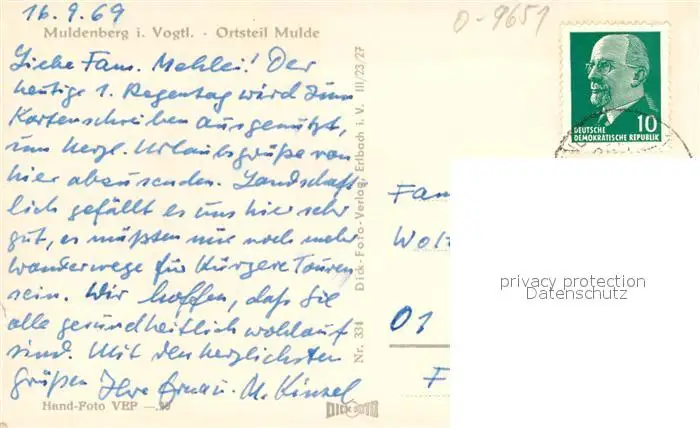 16.9.69
0-9651
Muldenberg i. Vogtl. · Ortsteil Mulde
Liebe Fam. Mehlei! Der
heutige 1. Regentag wird zum
Kartenschreiben ausgenutzt,
um herzl. Urlaubsgrüße von
hier abzusenden. Landschaft-
lich gefällt es uns hier sehr
gut, es müßten nur noch mehr
Wanderwege für kürzere Touren
sein. Wir hoffen, daß Sie
alle gesundheitlich wohlauf
sind. Mit den herzlichsten
Grüßen Ihre u. M. Kinzel
Hand-Foto VEP —
Nr. 334 Dick-Foto-Verlag, Erlbach i. V. III/23/27
DICK FOTO
10
DEUTSCHE
DEMOKRATISCHE REPUBLIK
Fam
Wolf
01
F
privacy protection
Datenschutz